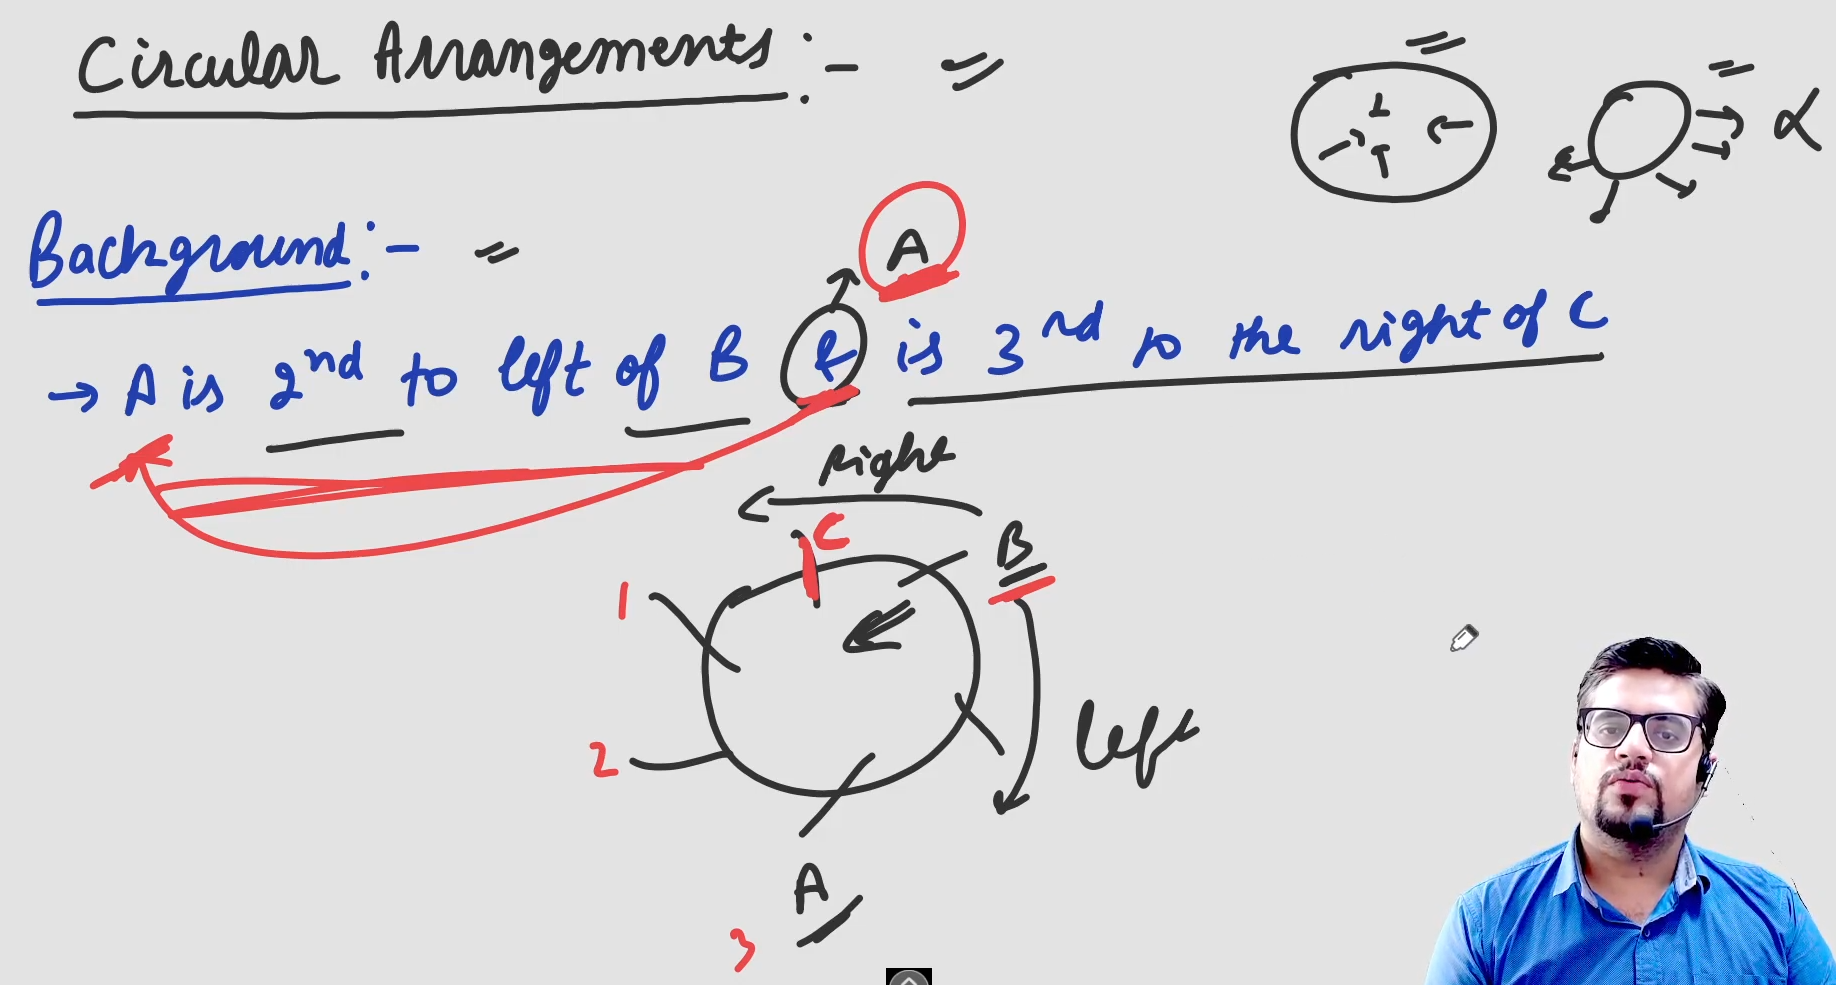 Circular Arrangements:-
Background:-
A
→ A is 2nd to left of B & is 3rd to the right of C
Right
C
B
1
left
2
A
3